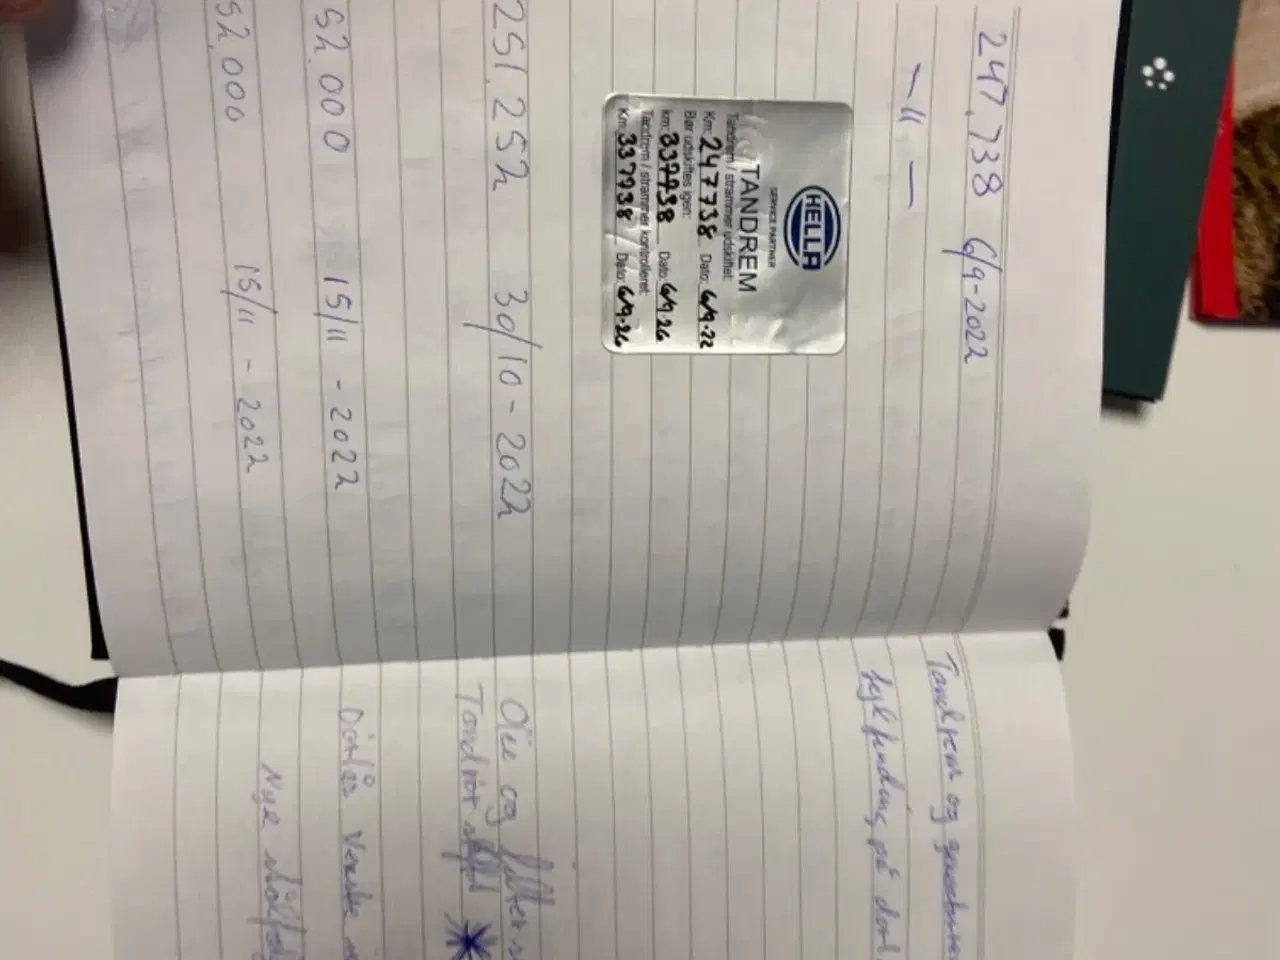 247.738 6/9-2022
— " —
HELLA
SERVICE PARTNER
TANDREM
Tandrem / strammer udskiftet:
Km: 247738 Dato: 6/9-22
Bør udskiftes igen:
km: 337738 Dato: 6/9-26
Tandrem / strammer kontrolleret:
Km: 337738 Dato: 6/9-26
251.252 30/10-2022
52.000 15/11-2022
52.000 15/11-2022
Tandrem og
fejlfinding på
Olie og filter
Tandrør
Dørlås Venstre
Nye